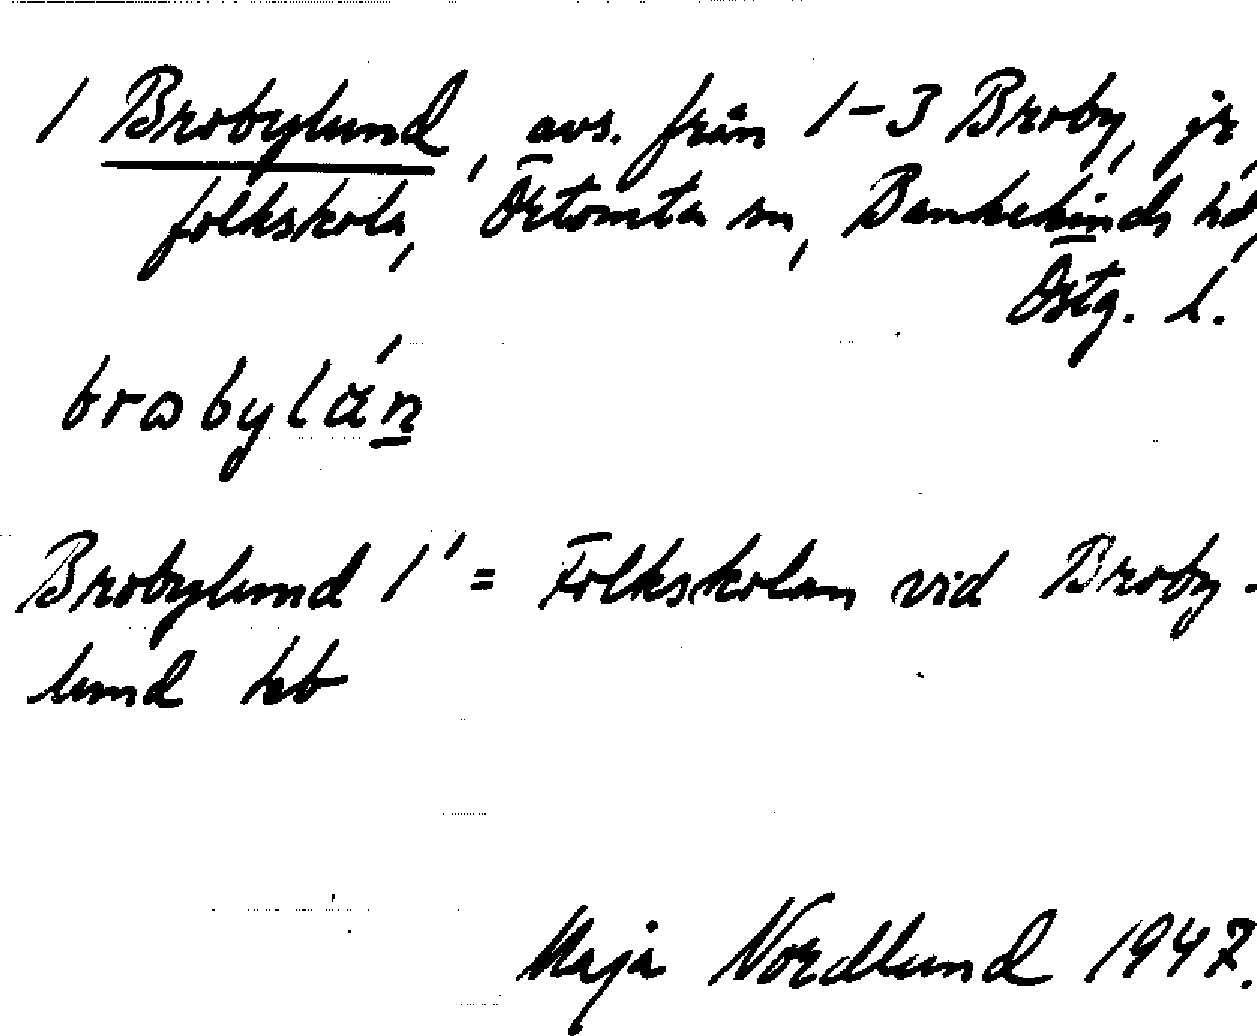 1 Brobylund, avs. från 1-3 Broby, jr,
folkskola, Örtomta sn, Bankekinds hd,
Östg. l.
brobylán
Brobylund 1' = Folkskolan vid Broby-
lund hb
Maja Nordlund 1947.